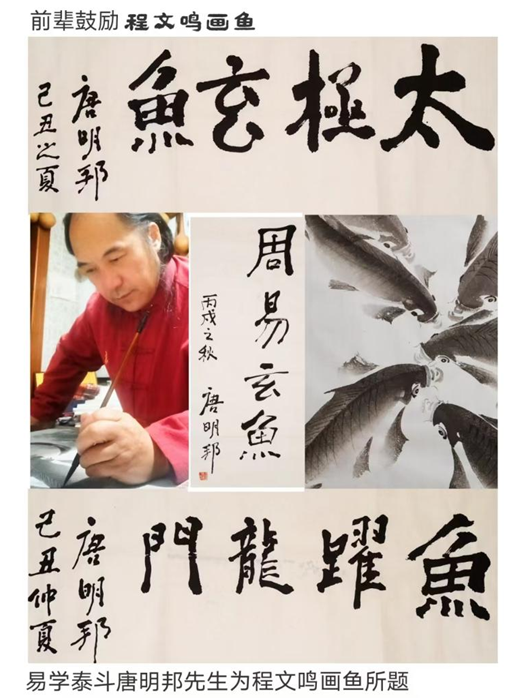 前辈鼓励 程文鸣画鱼
太極玄魚
己丑之夏
唐明邦
周易玄魚
丙戌之秋
唐明邦
魚躍龍門
己丑仲夏
唐明邦
易学泰斗唐明邦先生为程文鸣画鱼所题